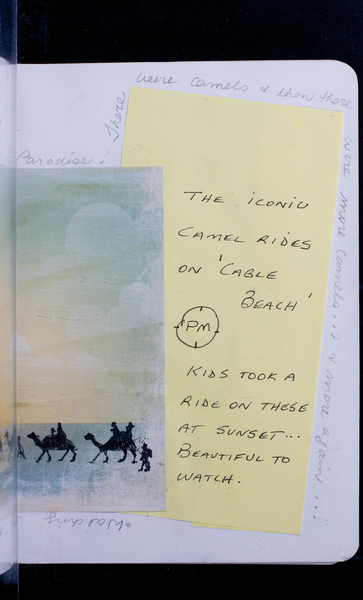 There were camels & then there were more camels...! & more again...!
Paradise!
THE ICONIC
CAMEL RIDES
ON 'CABLE
BEACH'
PM
KIDS TOOK A
RIDE ON THESE
AT SUNSET...
BEAUTIFUL TO
WATCH.